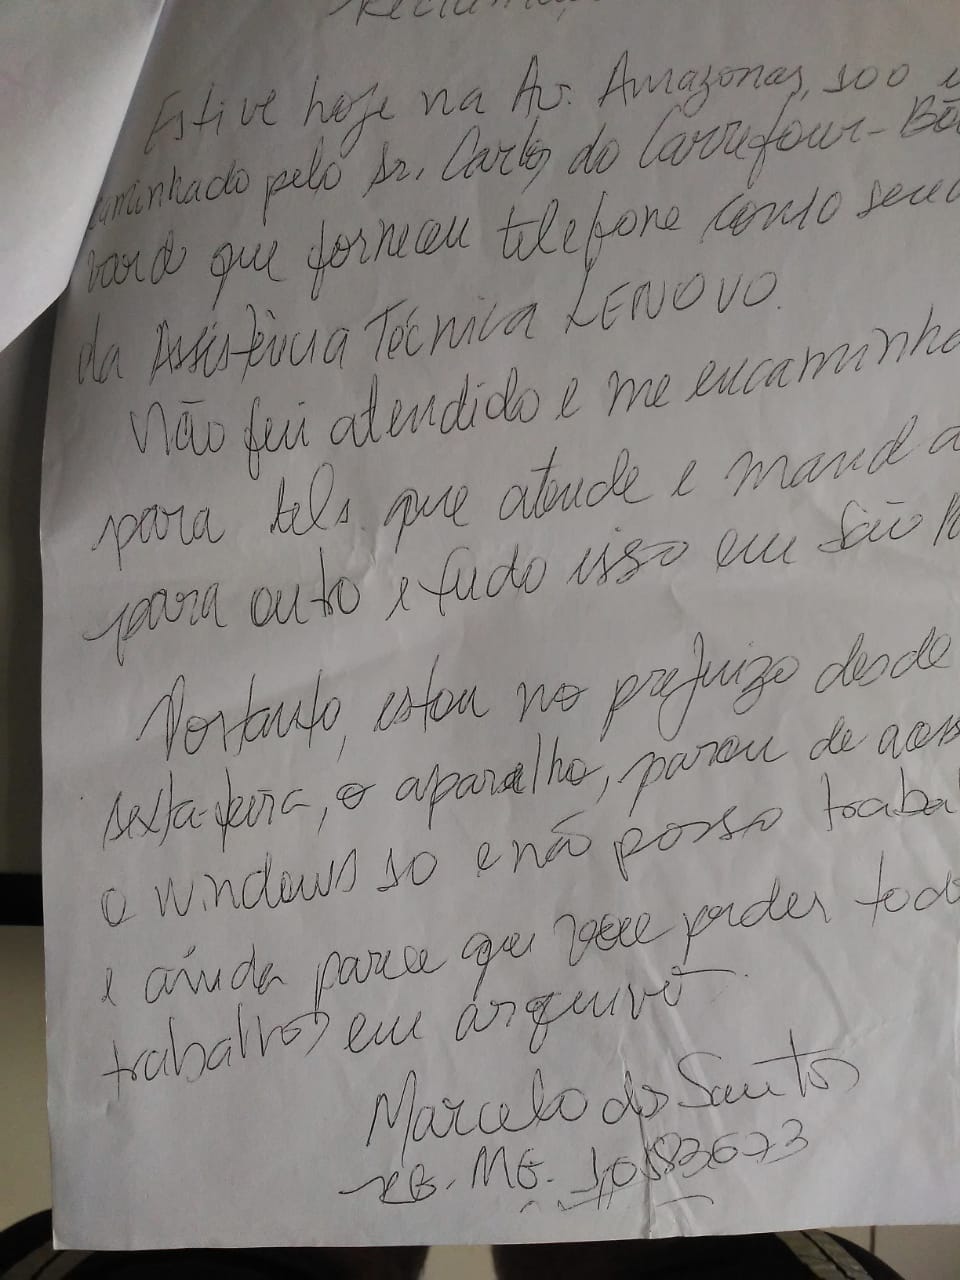 Reclamaç
Estive hoje na Av. Amazonas, 500
caminhado pelo Sr. Carlos do Carrefour-Bou
vard que forneceu telefone como send
da Assistência Técnica LENOVO.
Não fui atendido e me encaminha
para tels. que atende e manda
para outro e tudo isso em São P
Portanto, estou no prejuizo desde
sexta-feira, o aparelho, parou de aces
o windows 10 e não posso trabal
e ainda parece que vou perder tod
trabalhos em arquivo.
Marcelo dos Santos
RG. MG. 10183673